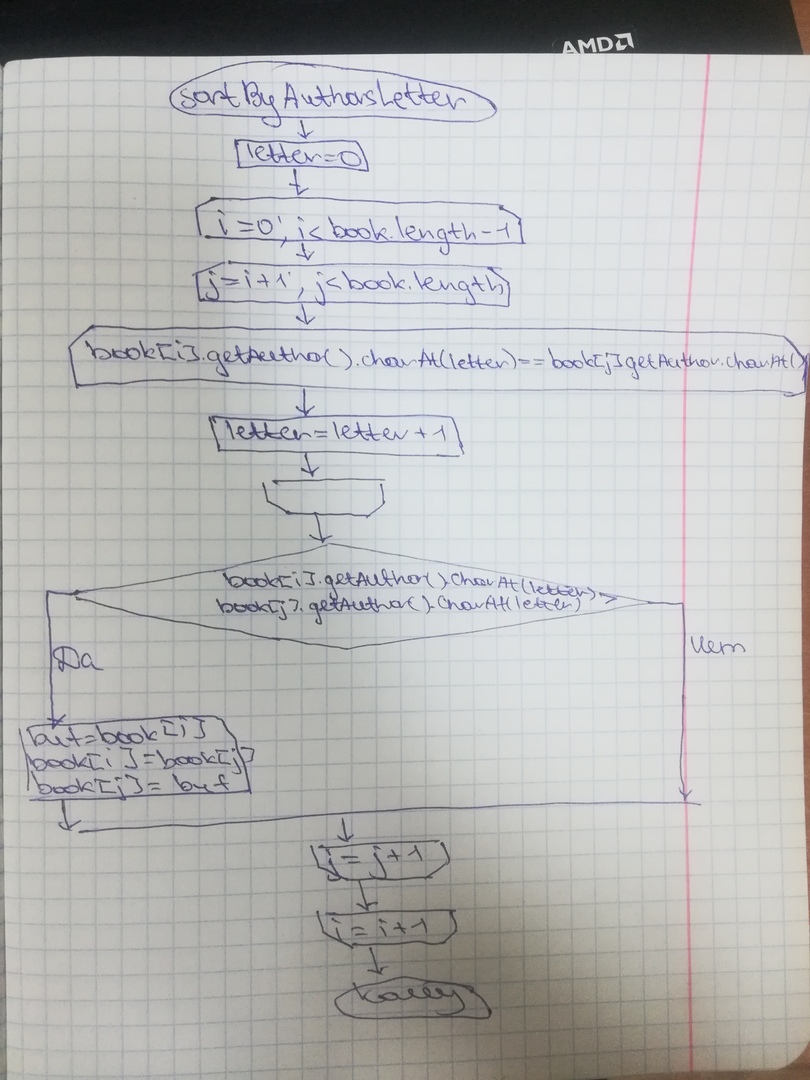 AMD
sortByAuthorsLetter
letter=0
i=0; i<book.length-1
j=i+1; j<book.length;
book[i].getAuthor().charAt(letter)==book[j]getAuthor.charAt()
letter=letter+1
book[i].getAuthor().charAt(letter)>
book[j].getAuthor().charAt(letter)
Да
Нет
buf=book[i]
book[i]=book[j]
book[j]=buf
j=j+1
i=i+1
Конец